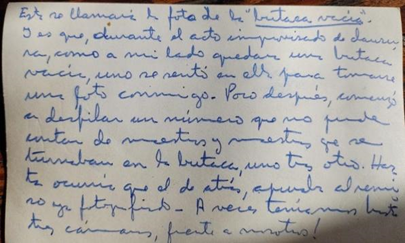 Esto se llamaría la foto de la "butaca vacía".
Y es que, durante el acto improvisado de clausu-
ra, como a mi lado quedara una butaca
vacía, uno se sentó en ella para tomarse
una foto conmigo. Poco después, comenzó
a desfilar un número que no puede
contar de maestros y maestras que se
turnaban en la butaca, uno tras otro. Has-
ta ocurría que el de atrás, al
so ya fotografiado - A veces teníamos hasta
tres cámaras, frente a nosotros!